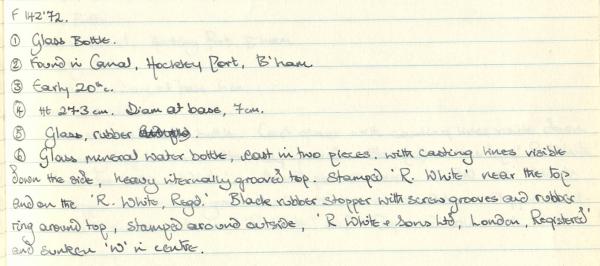 F 142'72.
① Glass Bottle.
② Found in Canal, Hockley Port, B'ham
③ Early 20thc.
④ Ht 27.3 cm. Diam at base, 7cm.
⑤ Glass, rubber
⑥ Glass mineral water bottle, cast in two pieces, with casting lines visible
down the side, heavy internally grooved top. Stamped 'R. White' near the top
and on the 'R. White, Regd.' Black rubber stopper with screw grooves and rubber
ring around top, stamped around outside, 'R White & Sons Ltd, London, Registered'
and sunken 'W' in centre.